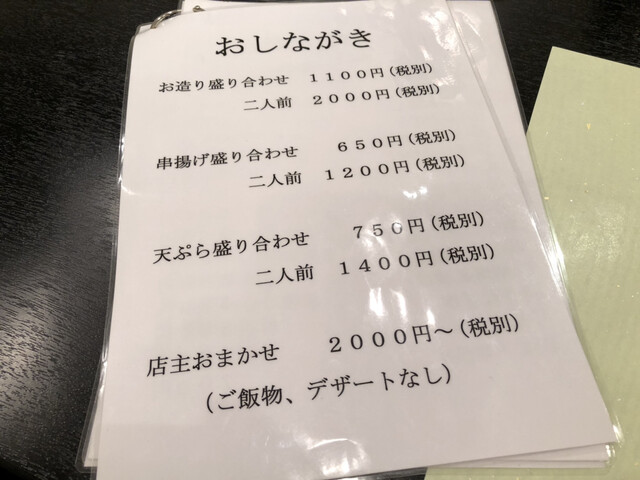 おしながき
お造り盛り合わせ　１１００円（税別）
二人前　２０００円（税別）
串揚げ盛り合わせ　６５０円（税別）
二人前　１２００円（税別）
天ぷら盛り合わせ　７５０円（税別）
二人前　１４００円（税別）
店主おまかせ　２０００円～（税別）
（ご飯物、デザートなし）